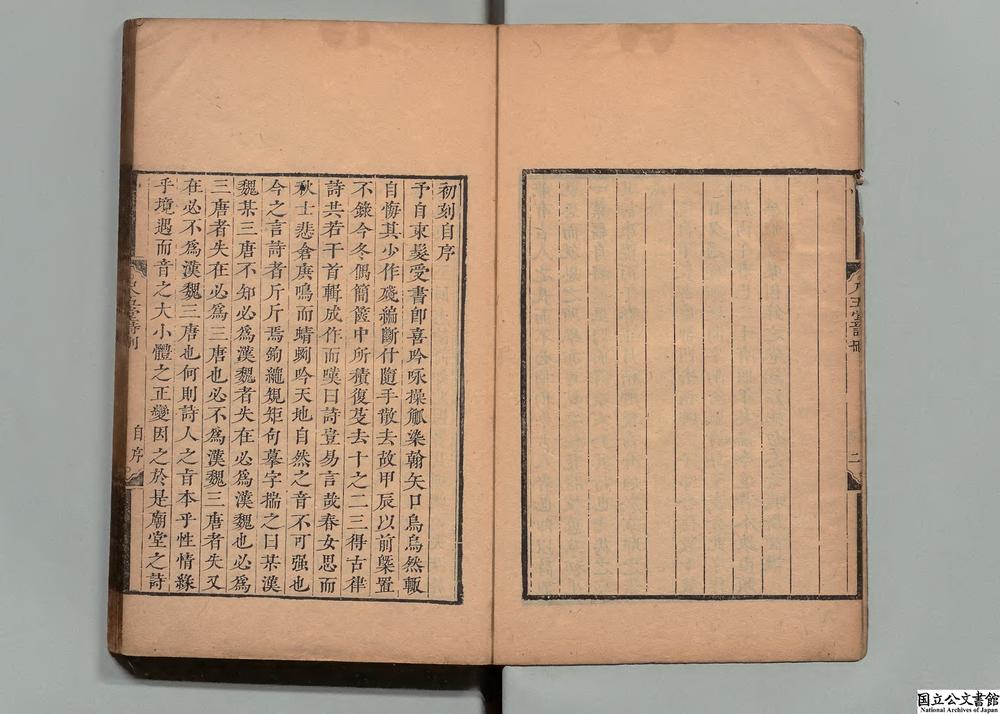 初刻自序
予自束髮受書卽喜吟咏操觚染翰矢口烏烏然輙
自悔其少作殘編斷什隨手散去故甲辰以前槩置
不錄今冬偶簡篋中所積復芟去十之二三得古律
詩共若干首輯成作而嘆曰詩豈易言哉春女思而
秋士悲倉庚鳴而蜻蛚吟天地自然之音不可强也
今之言詩者斤斤焉鉤繩規矩句摹字揣之曰某漢
魏某三唐不知必爲漢魏者失在必爲漢魏也必爲
三唐者失在必爲三唐也必不爲漢魏三唐者失又
在必不爲漢魏三唐也何則詩人之旨本乎性情緣
乎境遇而音之大小體之正變因之於是廟堂之詩
自序
二
国立公文書館
National Archives of Japan